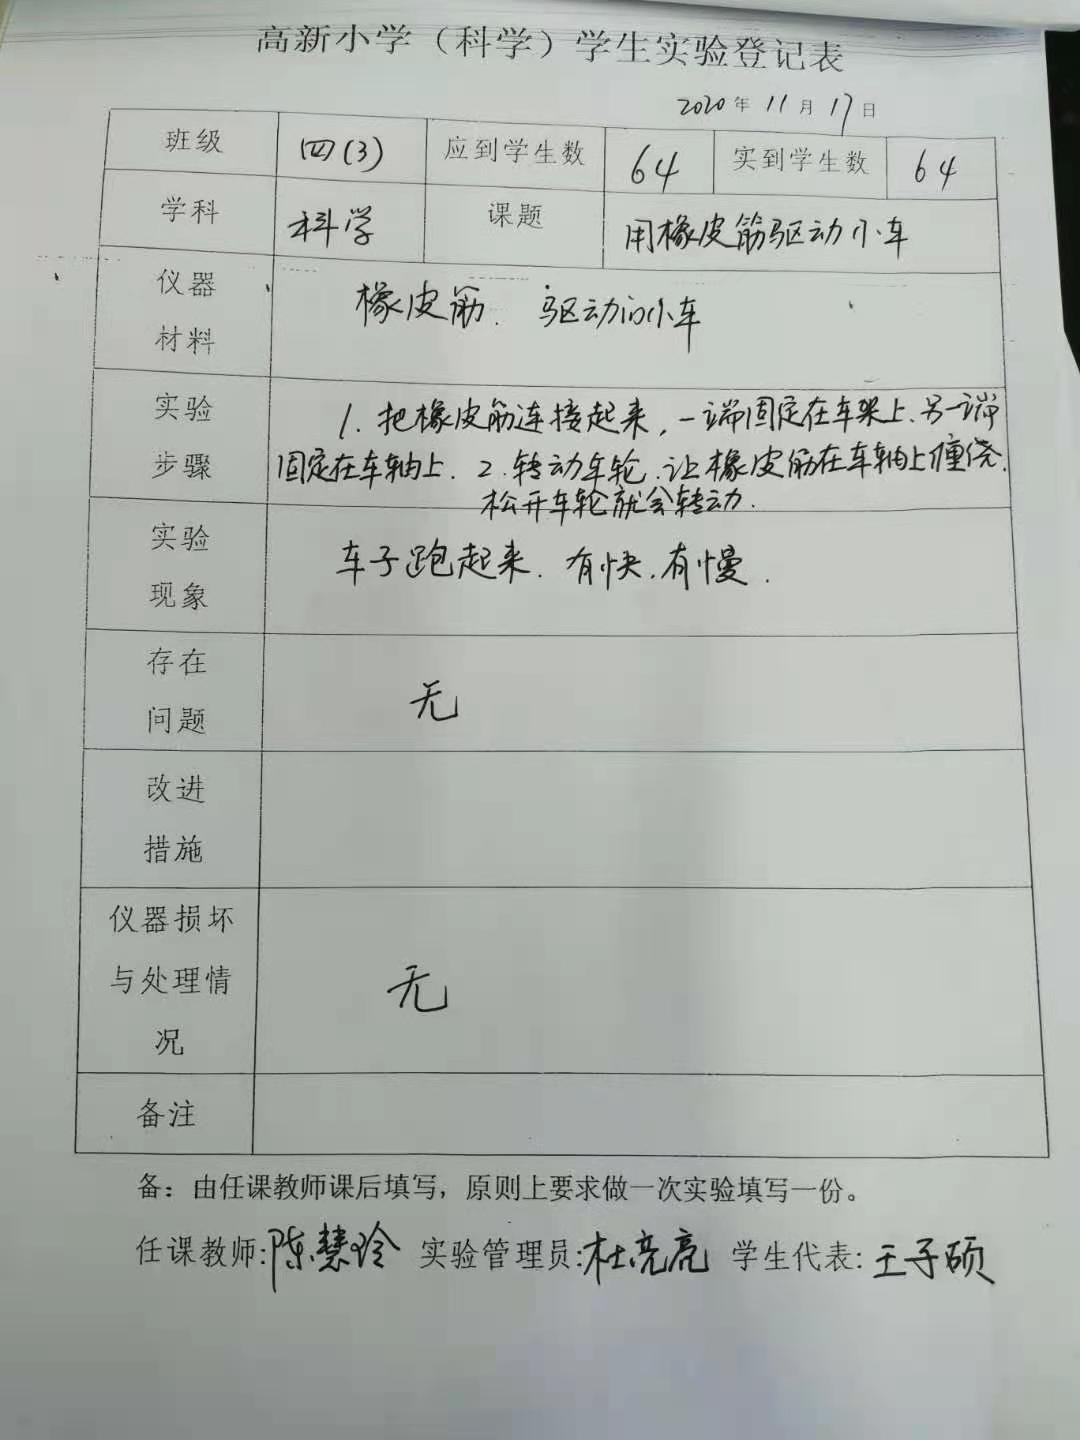 高新小学（科学）学生实验登记表
2020年 11月 17日
班级 四(3) 应到学生数 64 实到学生数 64
学科 科学 课题 用橡皮筋驱动小车
仪器
材料
橡皮筋. 驱动的小车
实验
步骤
1. 把橡皮筋连接起来, 一端固定在车架上. 另一端
固定在车轴上. 2. 转动车轮. 让橡皮筋在车轴上缠绕.
松开车轮就会转动.
实验
现象
车子跑起来. 有快. 有慢.
存在
问题
无
改进
措施
仪器损坏
与处理情
况
无
备注
备：由任课教师课后填写，原则上要求做一次实验填写一份。
任课教师:陈慧玲 实验管理员:杜亮亮 学生代表:王子硕